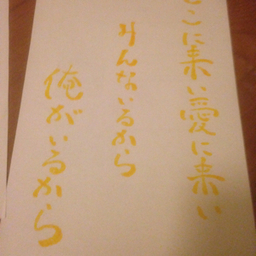 こに来い愛に来い
みんないるから
俺がいるから